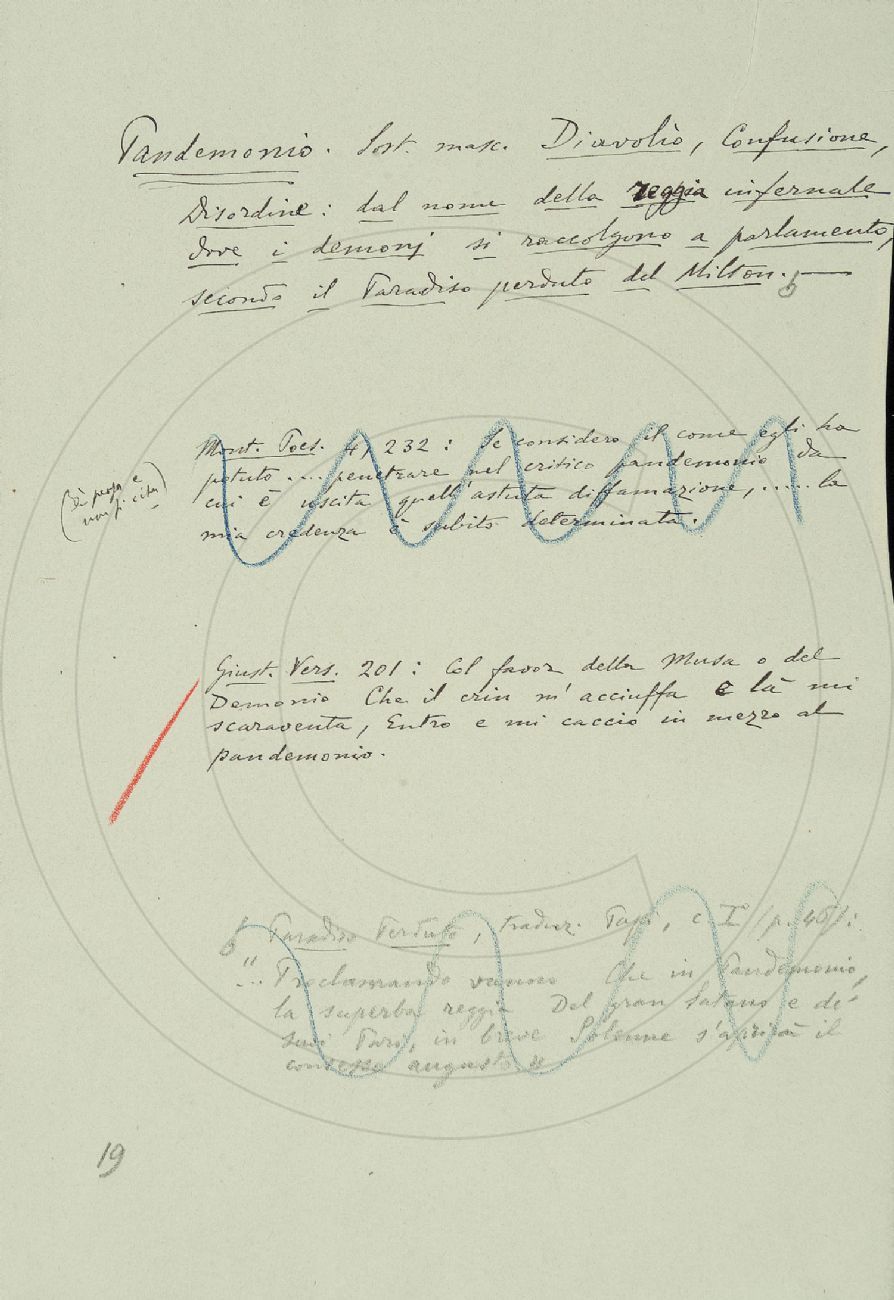 Pandemonio. Sost. masc. Diavolìo, Confusione,
Disordine: dal nome della reggia infernale
dove i demonj si raccolgono a parlamento,
secondo il Paradiso perduto del Milton.
Mont. Poes. 4, 232: Se considero al come egli ha
potuto .... penetrare nel critico pandemonio da
cui è uscita quell'astuta diffamazione, ..... la
mia credenza è subito determinata.
(È prosa e
non si cita)
Giust. Vers. 201: Col favor della Musa o del
Demonio Che il crin m'acciuffa e là mi
scaraventa, Entro e mi caccio in mezzo al
pandemonio.
Paradiso Perduto, traduz. Papi, c. I (p. 46):
"... Proclamando vanno Che in Pandemonio,
la superba reggia Del gran Satano e de'
suoi Pari, in breve Solenne s'aprirà il
consesso augusto "
19